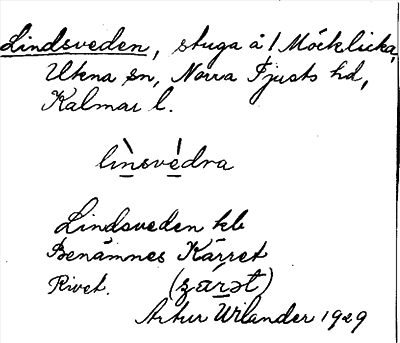 Lindsveden, stuga å 1 Möcklicka,
Ukna sn, Norra Tjusts hd,
Kalmar l.
lìnsvédra
Lindsveden kb
Benämnes Kärret
Rivet. (zárət)
Artur Wilander 1929